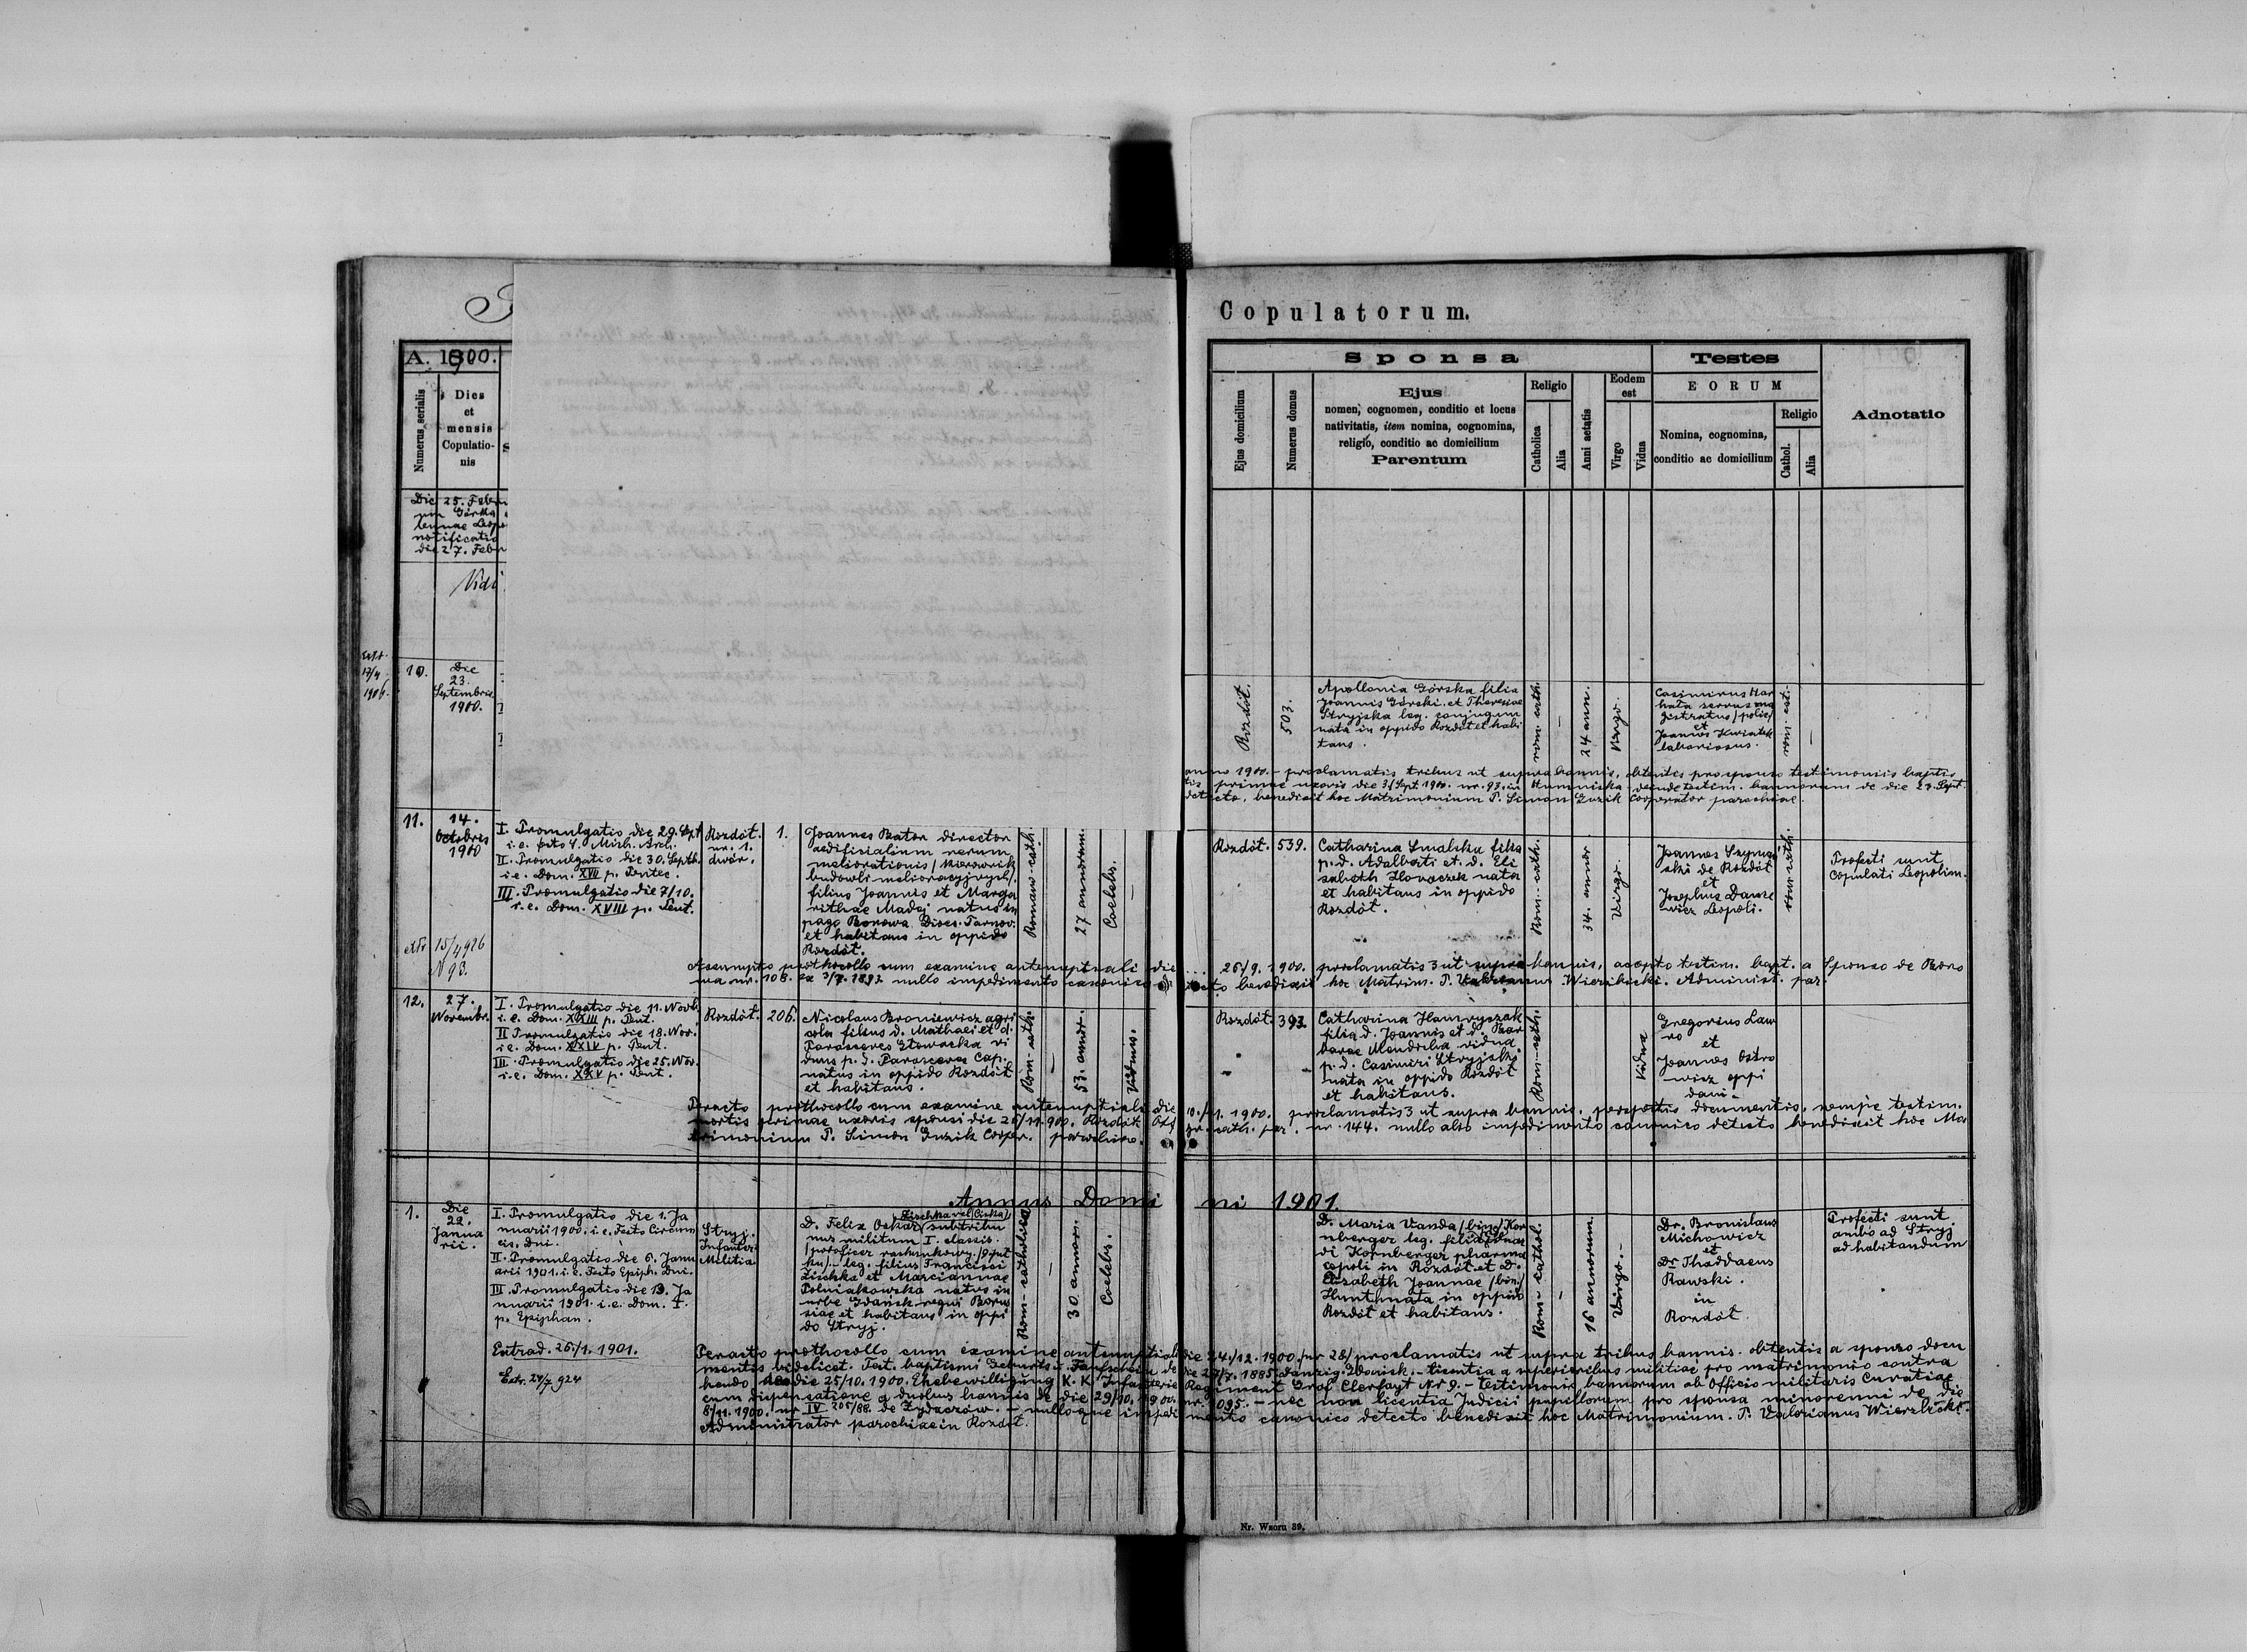 Copulatorum.
A. 1900.
Numerus serialis
Dies
et
mensis
Copulatio-
nis
Sponsa
Testes
Ejus domicilium
Numerus domus
Ejus
nomen, cognomen, conditio et locus
nativitatis, item nomina, cognomina,
religio, conditio ac domicilium
Parentum
Religio
Catholica
Alia
Anni aetatis
Eodem
est
Virgo
Vidua
EORUM
Nomina, cognomina,
conditio ac domicilium
Religio
Cathol.
Alia
Adnotatio
Die 25. Febr
nia Górska
lennae Leop
notificatio
die 27. Febr
Vidi
10.
Die
23.
Septembris
1900.
Rozdół.
503.
Apollonia Górska filia
Joannis Górski et Theresiae
Stryjska leg. conjugum
nata in oppido Rozdół et habi
tans.
rom. cath.
24 ann.
Virgo.
Casimirus Har
hata servus ma
gistratus /policy/
et
Joannes Kwiatek
laboriosus.
anno 1900. - proclamatis tribus ut supra bannis, obtentis pro sponso testimoniis baptis
tis primae uxoris die 3/Sept. 1900. nr. 93. in Humniska deinde testim. bannorum de die 23. Sept.
detecto, benedixit hoc Matrimonium P. Simon Guzik Cooperator parochiae.
11.
14.
Octobris
1900
I. Promulgatio die 29. Sept.
i. e. festo S. Mich. Arch.
II. Promulgatio die 30. Septb.
i. e. Dom. XVII p. Pentec.
III. Promulgatio die 7/10.
i. e. Dom. XVIII p. Pent.
Rozdół.
nr. 1.
dwór.
1.
Joannes Bator director
aedificialium rerum
meliorationis /kierownik
budowli melioracyjnych/.
filius Joannis et Marga
rithae Madej natus in
pago Borowa Dioec. Tarnov.
et habitans in oppido
Rozdół.
Romano-cath.
27 annorum.
Caelebs.
Rozdół.
539.
Catharina Smalska filia
p. d. Adalberti et. d. Eli
sabeth Hovaczek nata
et habitans in oppido
Rozdół.
Rom.-cath.
34. annor
Virgo.
Joannes Szymań
ski de Rozdół
et
Josephus Dance
wicz Leopoli.
rom. cath.
Profecti sunt
copulati Leopolim.
extr. 15/4 926
N 93.
Assumpto prothocollo cum examine antenuptiali die 26/9. 1900. proclamatis 3 ut supra bannis, accepto testim. bapt. a Sponso de Boro
wa nr. 108. ex 3/7. 1893. nullo impedimento canonico detecto benedixit hoc Matrim. P. Valerianus Wierzbicki. Administ. par.
12.
27.
Novembr.
I. Promulgatio die 11. Novb.
i. e. Dom. XXIII p. Pent.
II Promulgatio die 18. Nov.
i. e. Dom. XXIV p. Pent.
III. Promulgatio die 25. Nov.
i. e. Dom. XXV p. Pent.
Rozdół.
206.
Nicolaus Broniewicz agri
cola filius d. Mathaei et d.
Parasceves Głowacka vi
duus p. d. Parasceves Cap.
natus in oppido Rozdół
et habitans.
Rom.-cath.
53. annor.
Viduus.
Rozdół.
393.
Catharina Hawryszak
filia d. Joannis et d. Bar
barae Mendrela vidua
p. d. Casimiri Stryjski
nata in oppido Rozdół
et habitans.
Rom.-cath.
Vidua
Gregorius Law
ro
et
Joannes Ostro
wicz oppi
dani.
Peracto prothocollo cum examine antenuptiali die 10./11. 1900. proclamatis 3 ut supra bannis, perspectis documentis, nempe testim.
mortis primae uxoris sponsi die 26/11. 900. Rozdół Off gr. cath. par. nr. 144. nullo alio impedimento canonico detecto benedixit hoc Ma
trimonium P. Simon Guzik Cooper. parochiae.
Annus Domini 1901.
1.
Die
22.
Janua
rii.
I. Promulgatio die 1. Ja
nuarii 1900. i. e. Festo Circum
cis. Dni.
II. Promulgatio die 6. Janu
arii 1901. i. e. Festo Epiph. Dni.
III. Promulgatio die 13. Ja
nuarii 1901. i. e. Dom. I.
p. Epiphan.
Extrad. 26./1. 1901.
Extr. 24/7 924
Stryj.
Infanter.
Militia
Zischka vel (Ciska)
D. Felix Oskar subtribu
nus militum I. classis.
/podoficer rachunkowy. 9 puł
ku/. - leg. filius Francisci
Zischka et Mariannae
Polniakowska natus in
urbe Gdańsk regni Borus
siae et habitans in oppi
do Stryj.
Rom.-catholica
30 annor.
Caelebs.
D. Maria Vanda /bin./ Kor
nberger leg. filia Eduar
di Kornberger pharma
copoli in Rozdół et D.
Elisabeth Joannae /bin./
Hunt nata in oppido
Rozdół et habitans.
Rom-cathol.
16 annorum.
Virgo.-
Dr. Bronislaus
Michowicz
et
Dr Thaddaeus
Rawski.
in
Rozdół.
Profecti sunt
ambo ad Stryj
ad habitandum
Peracto prothocollo cum examine antenuptiali die 24./12. 1900. /nr 28/ proclamatis ut supra tribus bannis. obtentis a sponso docu
mentis videlicet. Test. baptismi Geburts u. Taufschein de die 27/7. 1885. Danzig. Gdańsk. - licentia a superioribus militiae pro matrimonio contra
hendo de die 25/10. 1900. Ehebewilligung K. K. Infanterie Regiment Graf Clerfayt Nr 9. - testimonio bannorum ab Officio militaris Curatiae
cum dispensatione a duobus bannis de die 29/10. 1900. nr. 1095. - nec non licentia Judicii pupillorum pro sponsa minorenni de die
8/11. 1900. nr IV 205/88. de Żydaczów. - nulloque impedimento canonico detecto benedixit hoc Matrimonium. P. Valerianus Wierzbicki
Administrator parochiae in Rozdół.
Nr. Wzoru 39.